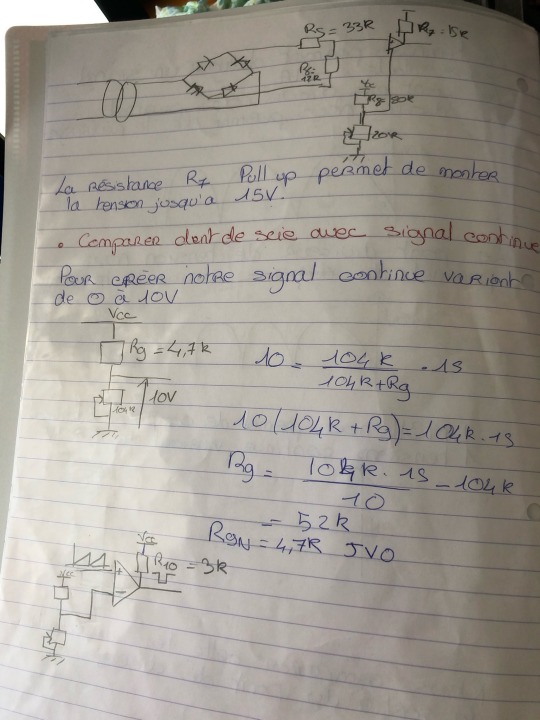 R5 = 33k
R7 = 15k
R6 = 12k
Vcc
R8 = 20k
20k
La résistance R7 Pull up permet de monter
la tension jusqu'a 15V.
• Comparer dent de scie avec signal continue
Pour créer notre signal continue varient
de 0 à 10V
Vcc
Rg = 4,7k
10k
10V
10 = 104k / 104k + Rg . 15
10(104k + Rg) = 104k . 15
Rg = 104k . 15 / 10 - 104k
= 52k
RgN = 4,7k
Vcc
R10 = 3k
Vcc